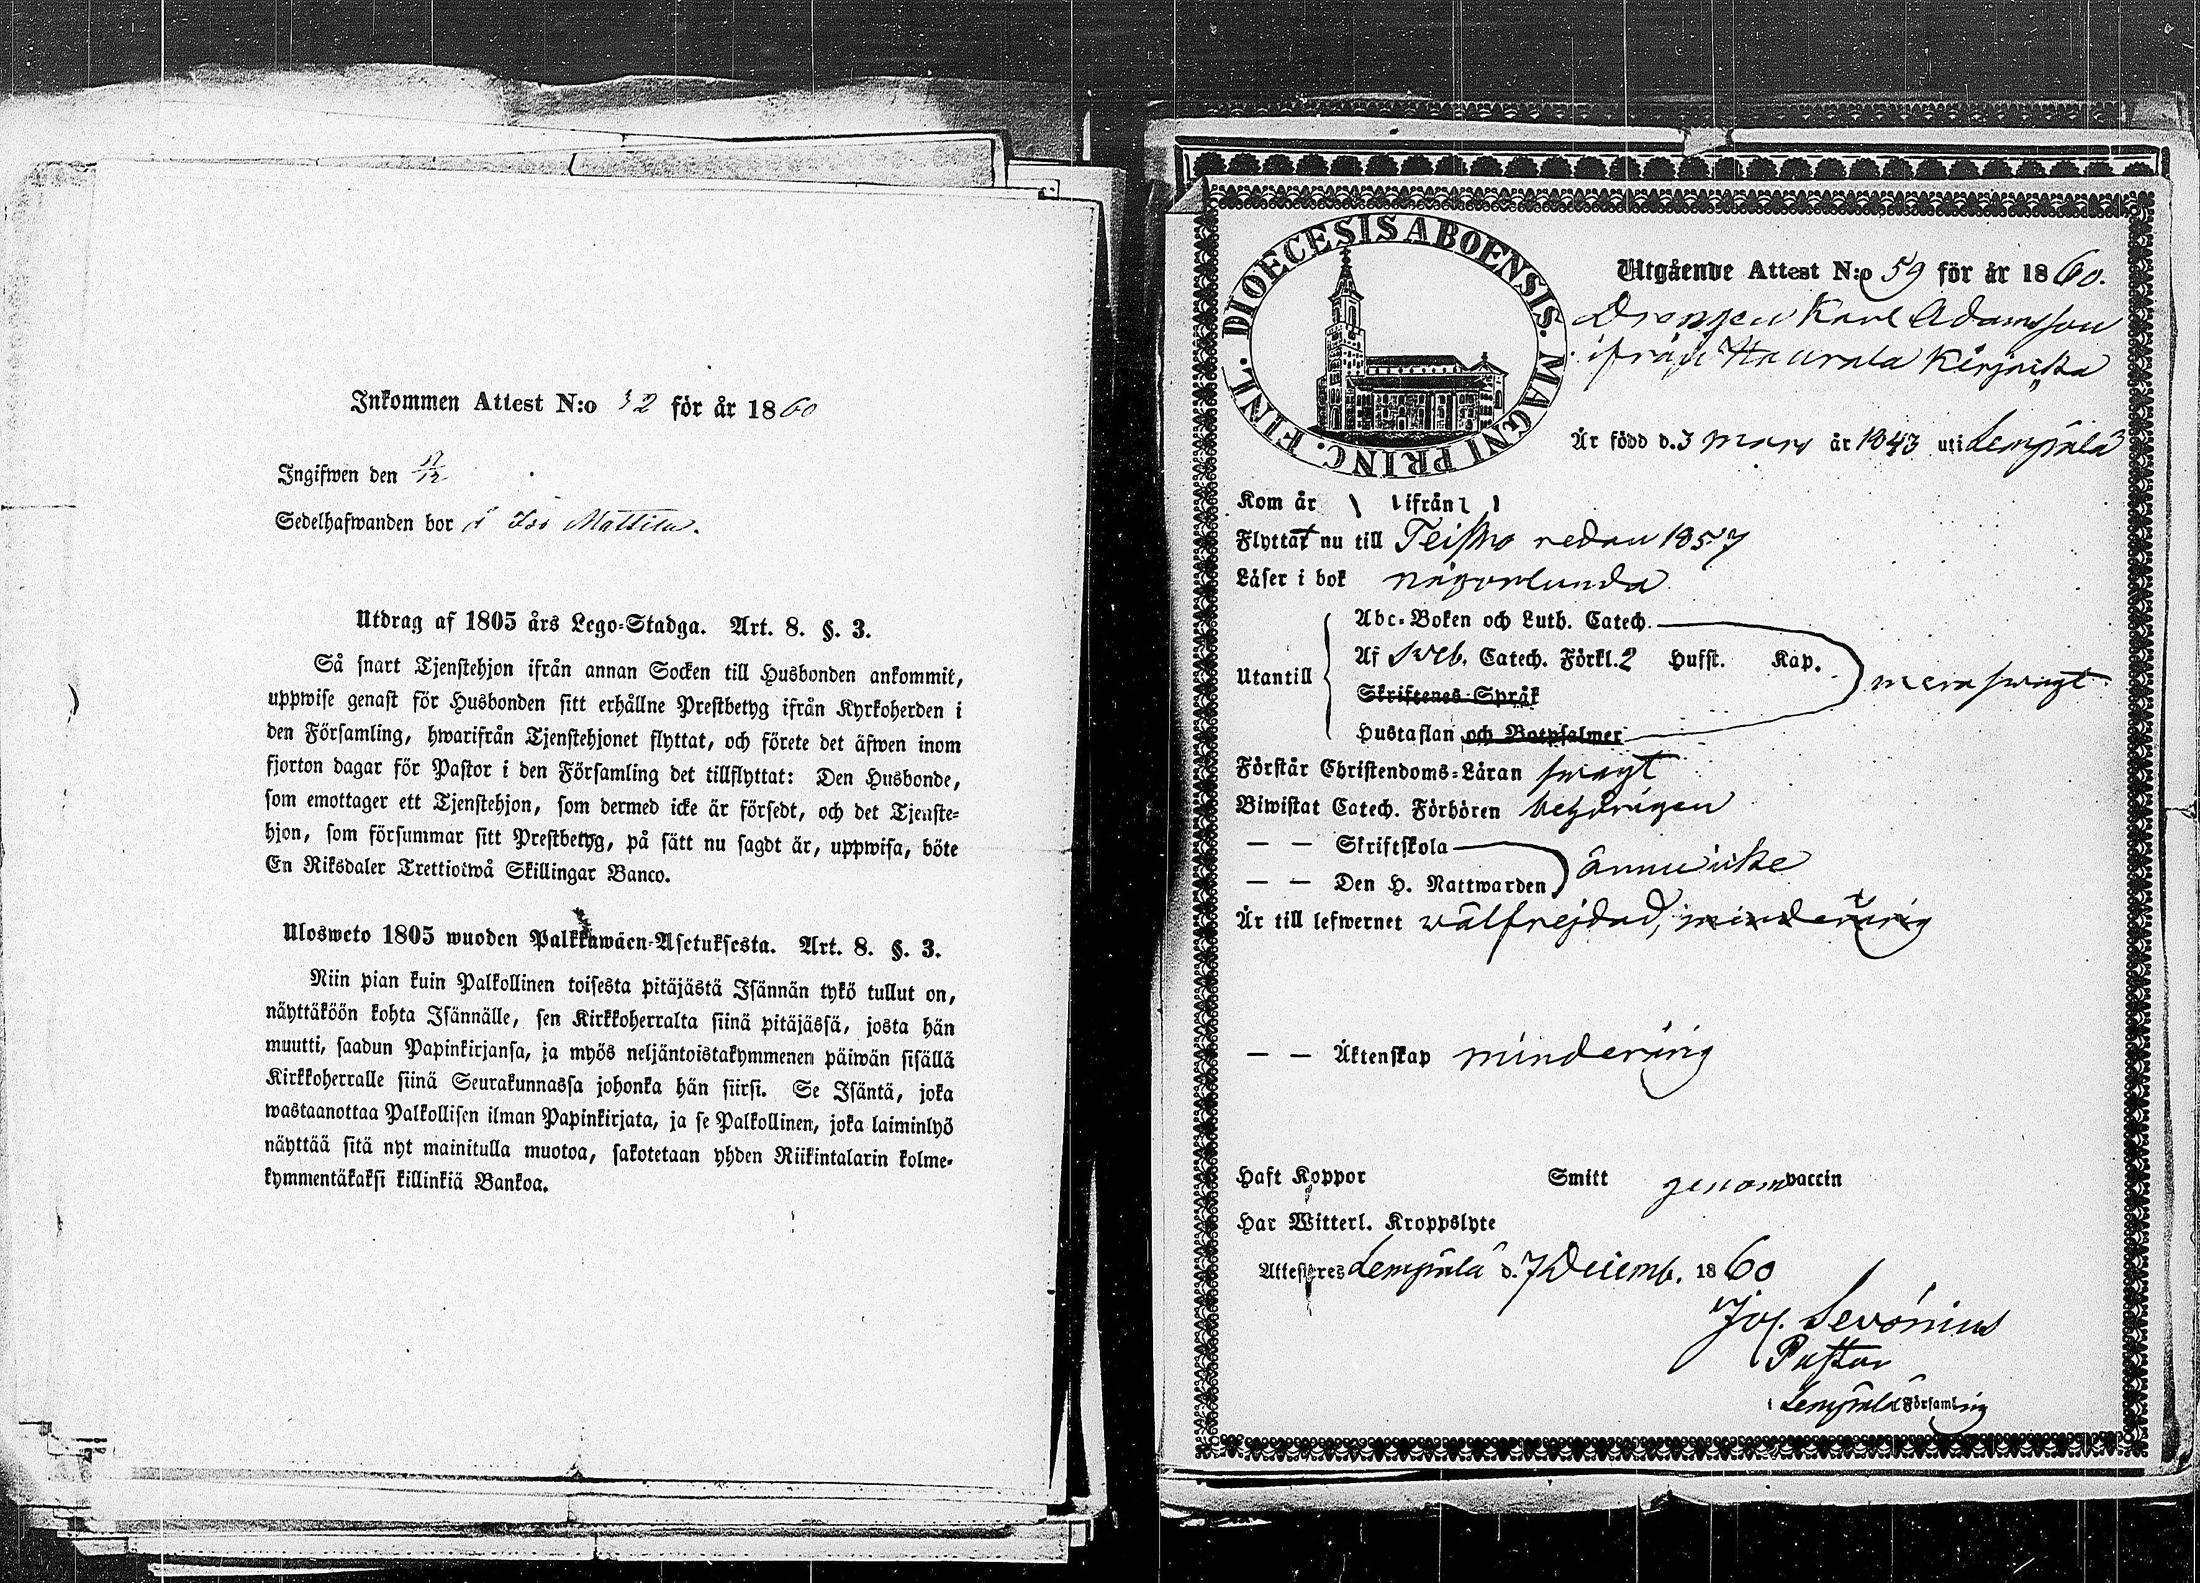 Inkommen Attest N:o 32 för år 1860
Ingifwen den 17/12
Sedelhafwanden bor i Iso Mattila.
Utdrag af 1805 års Lego-Stadga. Art. 8. §. 3.
Så snart Tjenstehjon ifrån annan Socken till Husbonden ankommit,
uppwise genast för Husbonden sitt erhållne Prestbetyg ifrån Kyrkoherden i
den Församling, hwarifrån Tjenstehjonet flyttat, och förete det äfwen inom
fjorton dagar för Pastor i den Församling det tillflyttat: Den Husbonde,
som emottager ett Tjenstehjon, som dermed icke är försedt, och det Tjenste-
hjon, som försummar sitt Prestbetyg, på sätt nu sagdt är, uppwisa, böte
En Riksdaler Trettiotwå Skillingar Banco.
Ulosweto 1805 wuoden Palkkawäen-Asetuksesta. Art. 8. §. 3.
Niin pian kuin Palkollinen toisesta pitäjästä Isännän tykö tullut on,
näyttäköön kohta Isännälle, sen Kirkkoherralta siinä pitäjässä, josta hän
muutti, saadun Papinkirjansa, ja myös neljäntoistakymmenen päiwän sisällä
Kirkkoherralle siinä Seurakunnassa johonka hän siirsi. Se Isäntä, joka
wastaanottaa Palkollisen ilman Papinkirjata, ja se Palkollinen, joka laiminlyö
näyttää sitä nyt mainitulla muotoa, sakotetaan yhden Riikintalarin kolme-
kymmentäkaksi killinkiä Bankoa.
DIOECESIS ABOENSIS. MAGNI PRINC. FINL.
Utgående Attest N:o 59 för år 1860.
Drengen Karl Adamsson
ifrån Haurala Kirjaista
Är född d. 3 Mars år 1843 uti Lempälä
Kom år ifrån
Flyttat nu till Teisko redan 1857
Läser i bok någorlunda
Utantill
Abc-Boken och Luth. Catech.
Af Sveb. Catech. Förkl. 2 Hufst. Kap.
Skriftenes Språk
Hustaflan och Botpsalmer
mera svagt
Förstår Christendoms-Läran svagt
Biwistat Catech. Förhören behörigen
— — Skriftskola
— — Den H. Nattwarden
ännu icke
Är till lefwernet välfrejdad, minderårig
— — Äktenskap minderårig
Haft Koppor Smitt genom vaccin
Har Witterl. Kroppslyte
Attesteres Lempälä d. 7 Decemb. 1860
Jos. Sevónius
Pastor
i Lempälä Församling